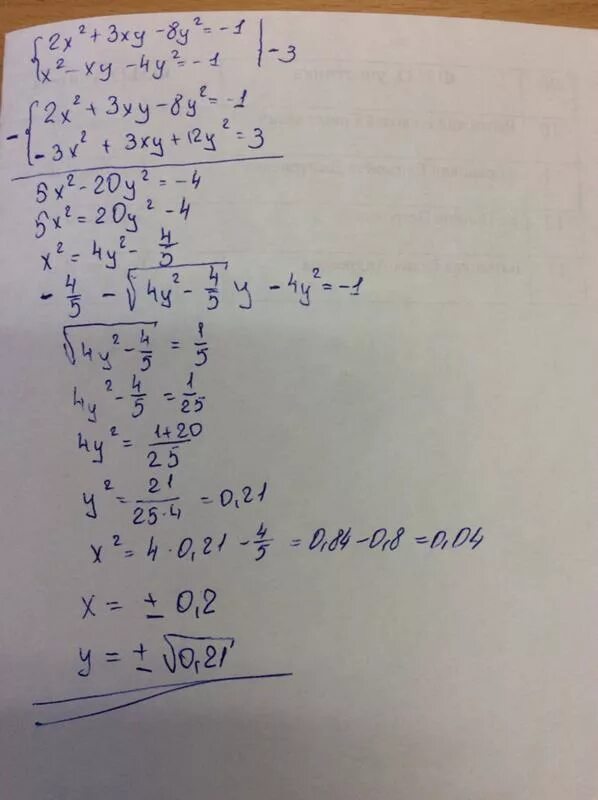 {2x² + 3xy - 8y² = -1
{x² - xy - 4y² = -1 | -3
-{2x² + 3xy - 8y² = -1
{-3x² + 3xy + 12y² = 3
5x² - 20y² = -4
5x² = 20y² - 4
x² = 4y² - 4/5
- 4/5 - √(4y² - 4/5) y - 4y² = -1
√(4y² - 4/5) = 1/5
4y² - 4/5 = 1/25
4y² = (1+20)/25
y² = 21/(25·4) = 0,21
x² = 4 · 0,21 - 4/5 = 0,84 - 0,8 = 0,04
x = ± 0,2
y = ± √0,21